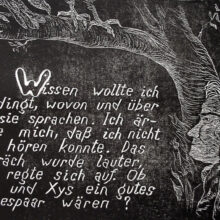 Wissen wollte ich
dingt, wovon und über
sie sprachen. Ich är-
e mich, daß ich nicht
hören konnte. Das
räch wurde lauter,
regte sich auf. Ob
und Xys ein gutes
espaar wären ?